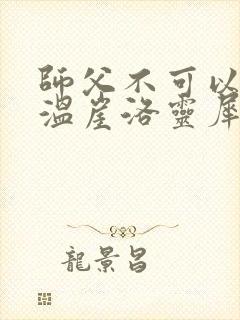 師父不可以
溫崖洛靈犀
龍景昌